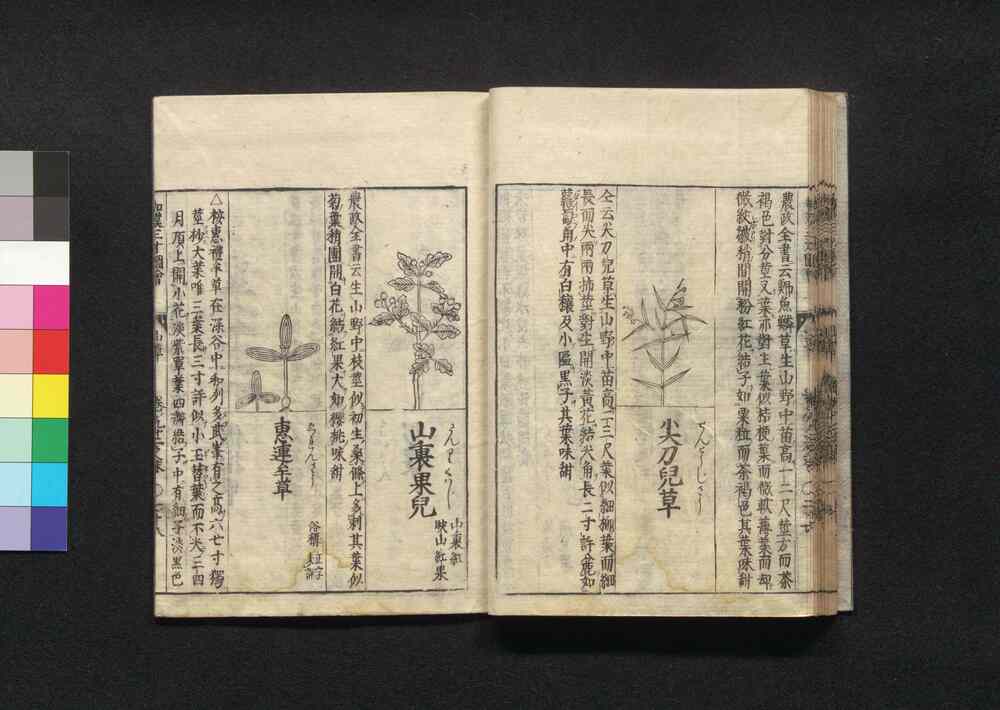 農政全書云鯽魚鱗草生山野中苗高一二尺莖方而茶
褐色對分莖叉葉亦對生葉似桔梗葉而微軟薄葉面却
微紋皺梢間開粉紅花結子如粟粒而茶褐色其葉味甜
尖刀兒草
仝云尖刀兒草生山野中苗高二三尺葉似細柳葉而細
長而尖兩兩抪莖對生開淡黃花結尖角長二寸許
角中有白穰及小匾黒子其葉味甜
山裏果兒
山裏紅
映山紅果
農政全書云生山野中枝莖似初生桑條上多刺其葉似
菊葉稍團開白花結紅果大如櫻桃味甜
恵連牟草
俗稱
正字
未詳
△按恵禮牟草在深谷中和列多武峯有之高六七寸獨
莖杪大葉唯三葉長三寸許似小玉簪葉而不尖三四
月頂上開小花淡紫單葉四瓣結子中有細子淡黒色
和漢三才圖會
山草